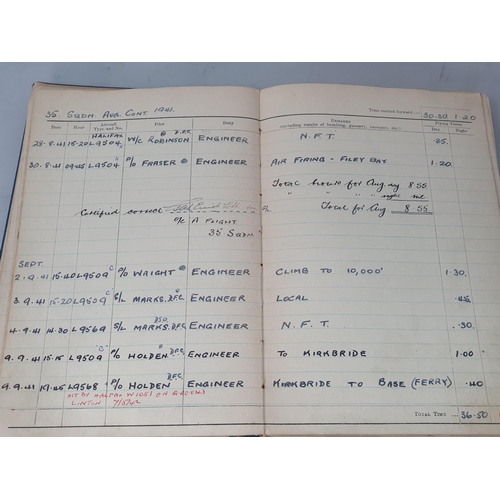 35 SQDN. AUG. CONT 1941.
Time carried forward:— 30.30 1.20
Date Hour Aircraft Type and No. Pilot Duty REMARKS (including results of bombing, gunnery, exercises, etc.) Flying Times
Day Night
HALIFAX D.F.C.
28.8.41 15.20 L9504 W/C ROBINSON ENGINEER N.F.T. .25.
30.8.41 09.45 L9504 P/O FRASER ENGINEER AIR FIRING – FILEY BAY 1.20.
Total hours for Aug day 8.55
" " " " night nil
Certified correct F/L Total for Aug 8.55
O/C A FLIGHT.
35 SQDN.
SEPT.
2.9.41 15.40 L9509 P/O WRIGHT ENGINEER CLIMB TO 10,000' 1.30.
3.9.41 15.20 L9509 S/L MARKS. D.F.C. ENGINEER LOCAL .45
4.9.41 14.30 L9569 S/L MARKS. D.S.O. D.F.C. ENGINEER N.F.T. .30
9.9.41 15.15 L9509 P/O HOLDEN D.F.C. ENGINEER TO KIRKBRIDE 1.00
9.9.41 19.45 L9568 P/O HOLDEN D.F.C. ENGINEER KIRKBRIDE TO BASE (FERRY) .40
HIT BY HALIFAX W1051 ON GROUND
LINTON 7/5/42
TOTAL TIME ... 36.50